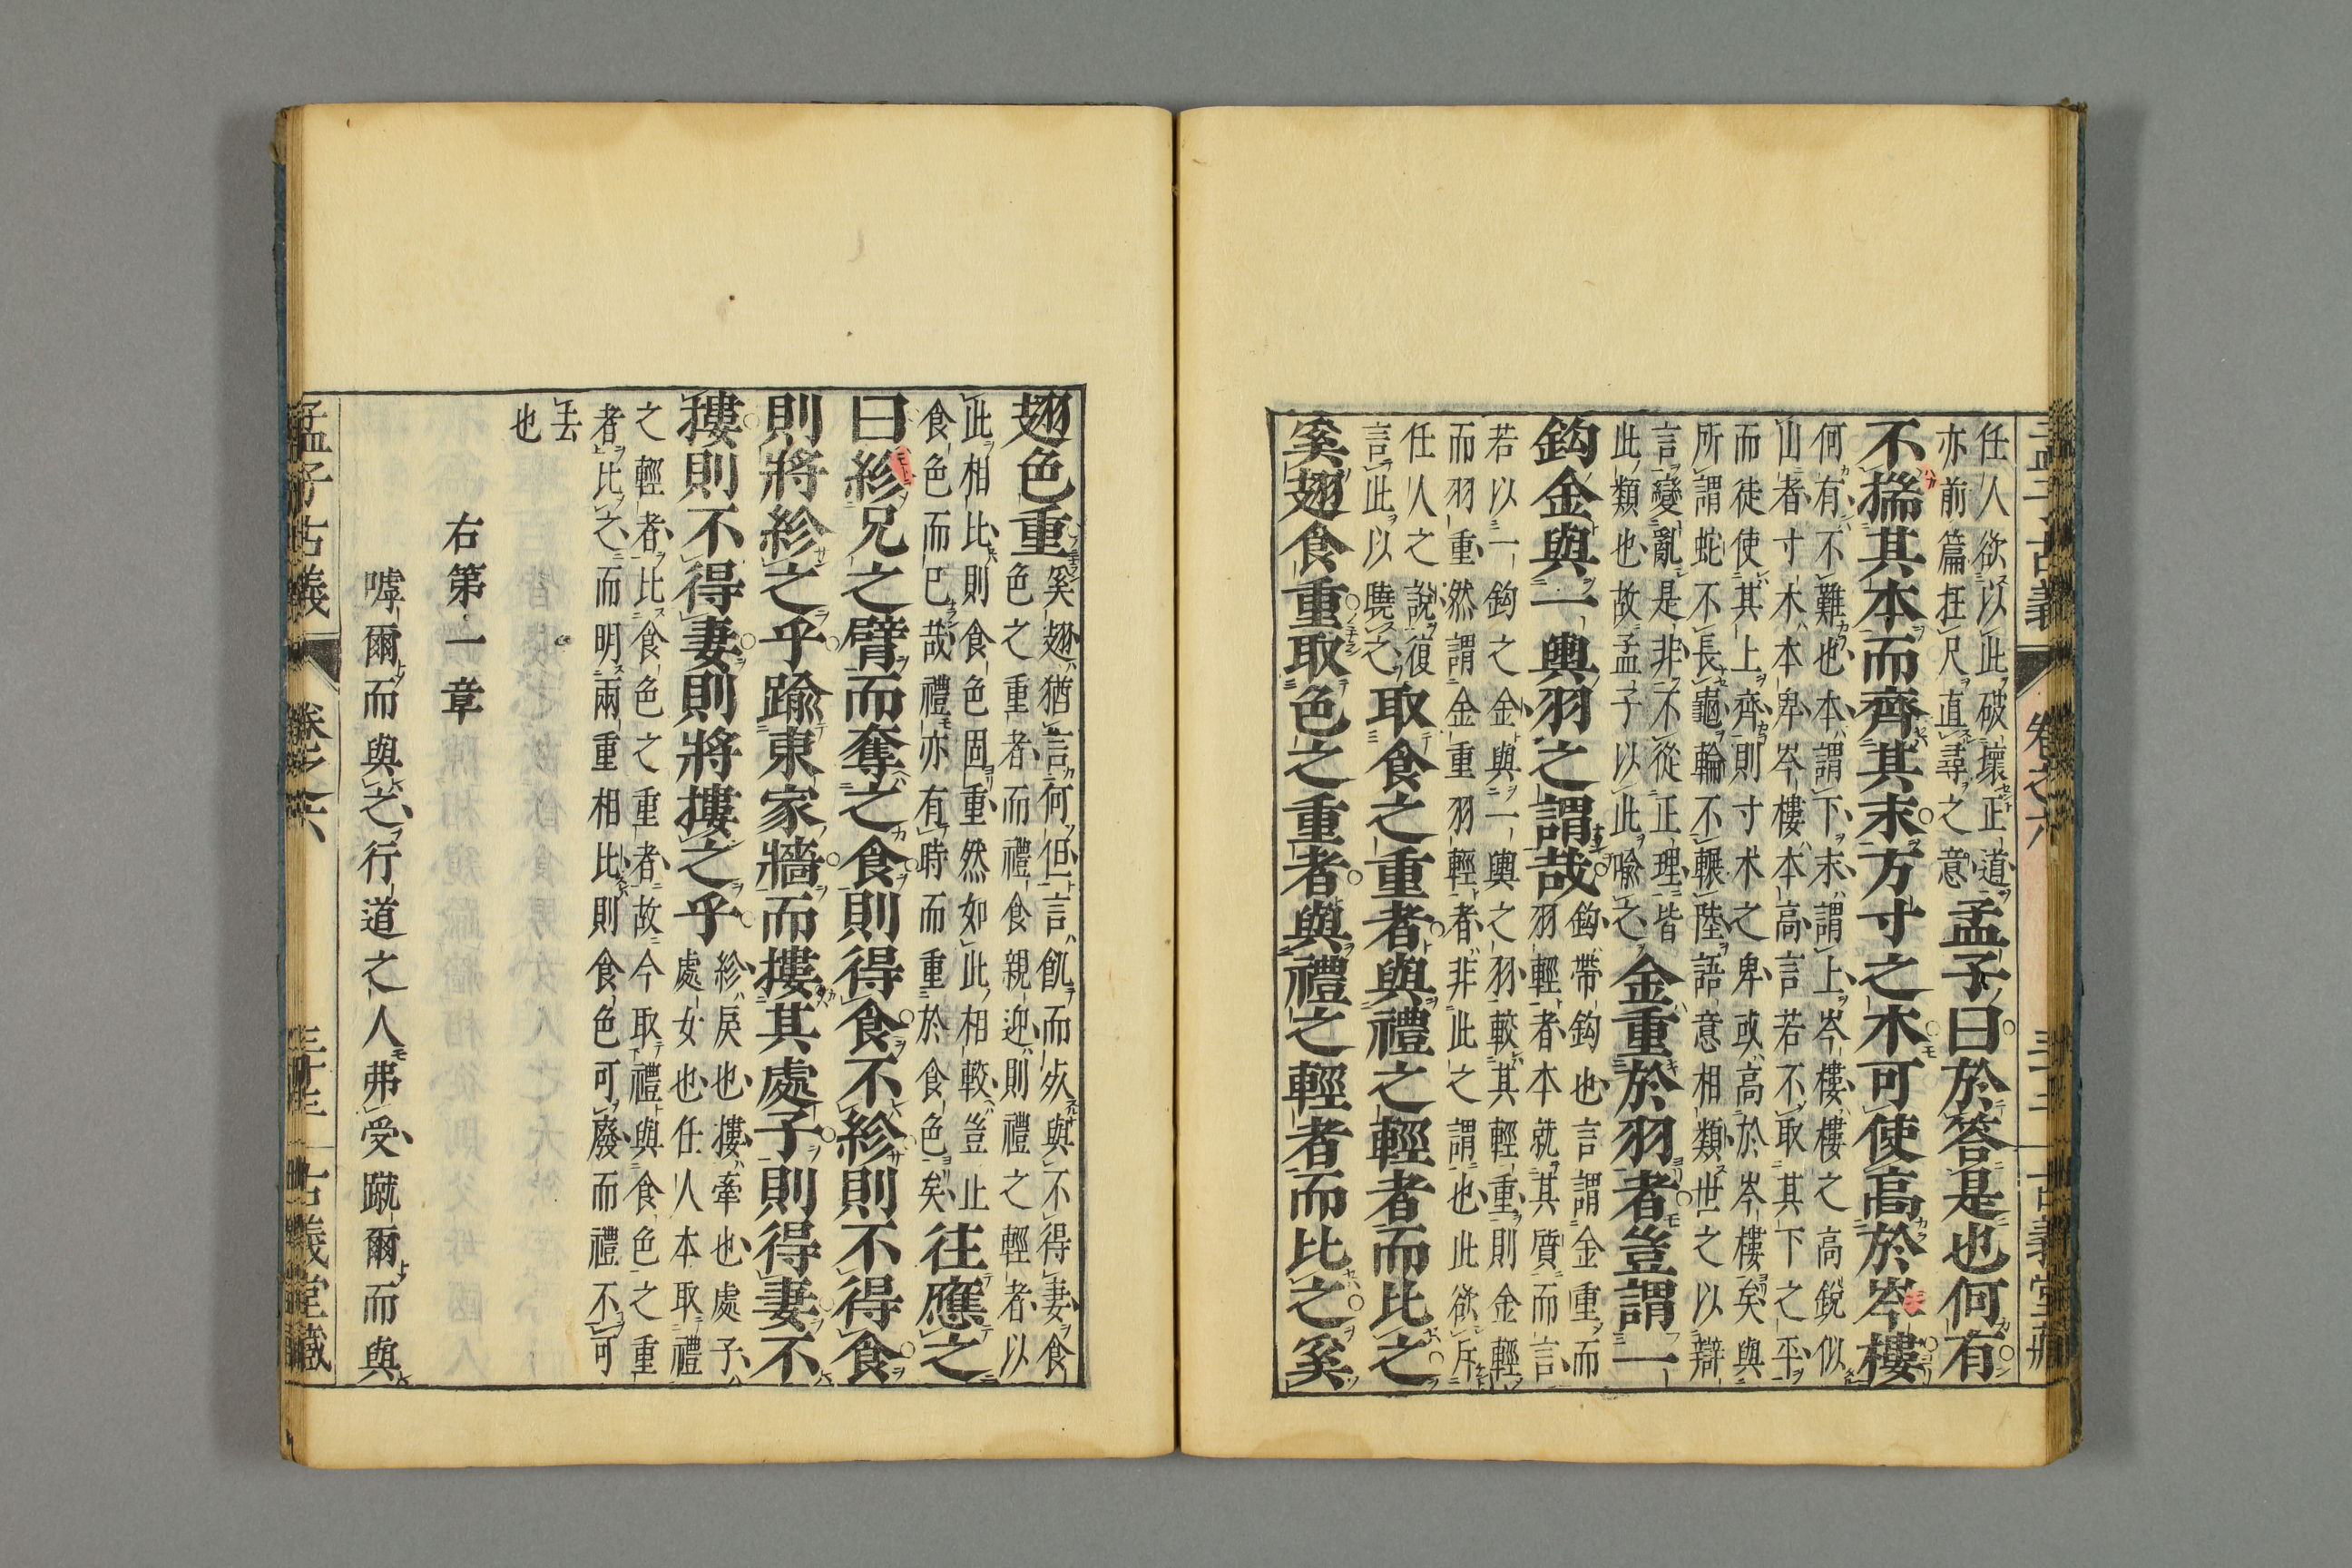 任人欲以此破壞正道
亦前篇枉尺直尋之意
孟子曰於答是也何有
不揣其本而齊其末方寸之木可使高於岑樓
何有不難也本謂下末謂上岑樓樓之高銳似
山者寸木本卑岑樓本高言若不取其下之平
而徒使其上齊則寸木之卑或高於岑樓矣與
所謂蛇不長龜輪不輾陸語意相類世之以辯
言變亂是非不從正理皆
此類也故孟子以此喩之
金重於羽者豈謂一
鈎金與一輿羽之謂哉
鈎帶鈎也言謂金重而
羽輕者本就其質而言
若以一鈎之金與一輿之羽較其輕重則金輕
而羽重然謂金重羽輕者非此之謂也此欲斥
任人之說復
言此以曉之
取食之重者與禮之輕者而比之
奚翅食重取色之重者與禮之輕者而比之奚
翅色重
奚翅猶言何但言飢而死與不得妻食
色之重者而禮食親迎則禮之輕者以
此相比則食色固重然如此相較豈止
食色而已哉禮亦有時而重於食色矣
往應之
曰紾兄之臂而奪之食則得食不紾則不得食
則將紾之乎踰東家牆而摟其處子則得妻不
摟則不得妻則將摟之乎
紾戾也摟牽也處子
處女也任人本取禮
之輕者比食色之重者故今取禮與食色之重
者比之而明兩重相比則食色可廢而禮不可
去
也
右第一章
嘑爾而與之行道之人弗受蹴爾而與
孟子古義
卷之六
古義堂藏